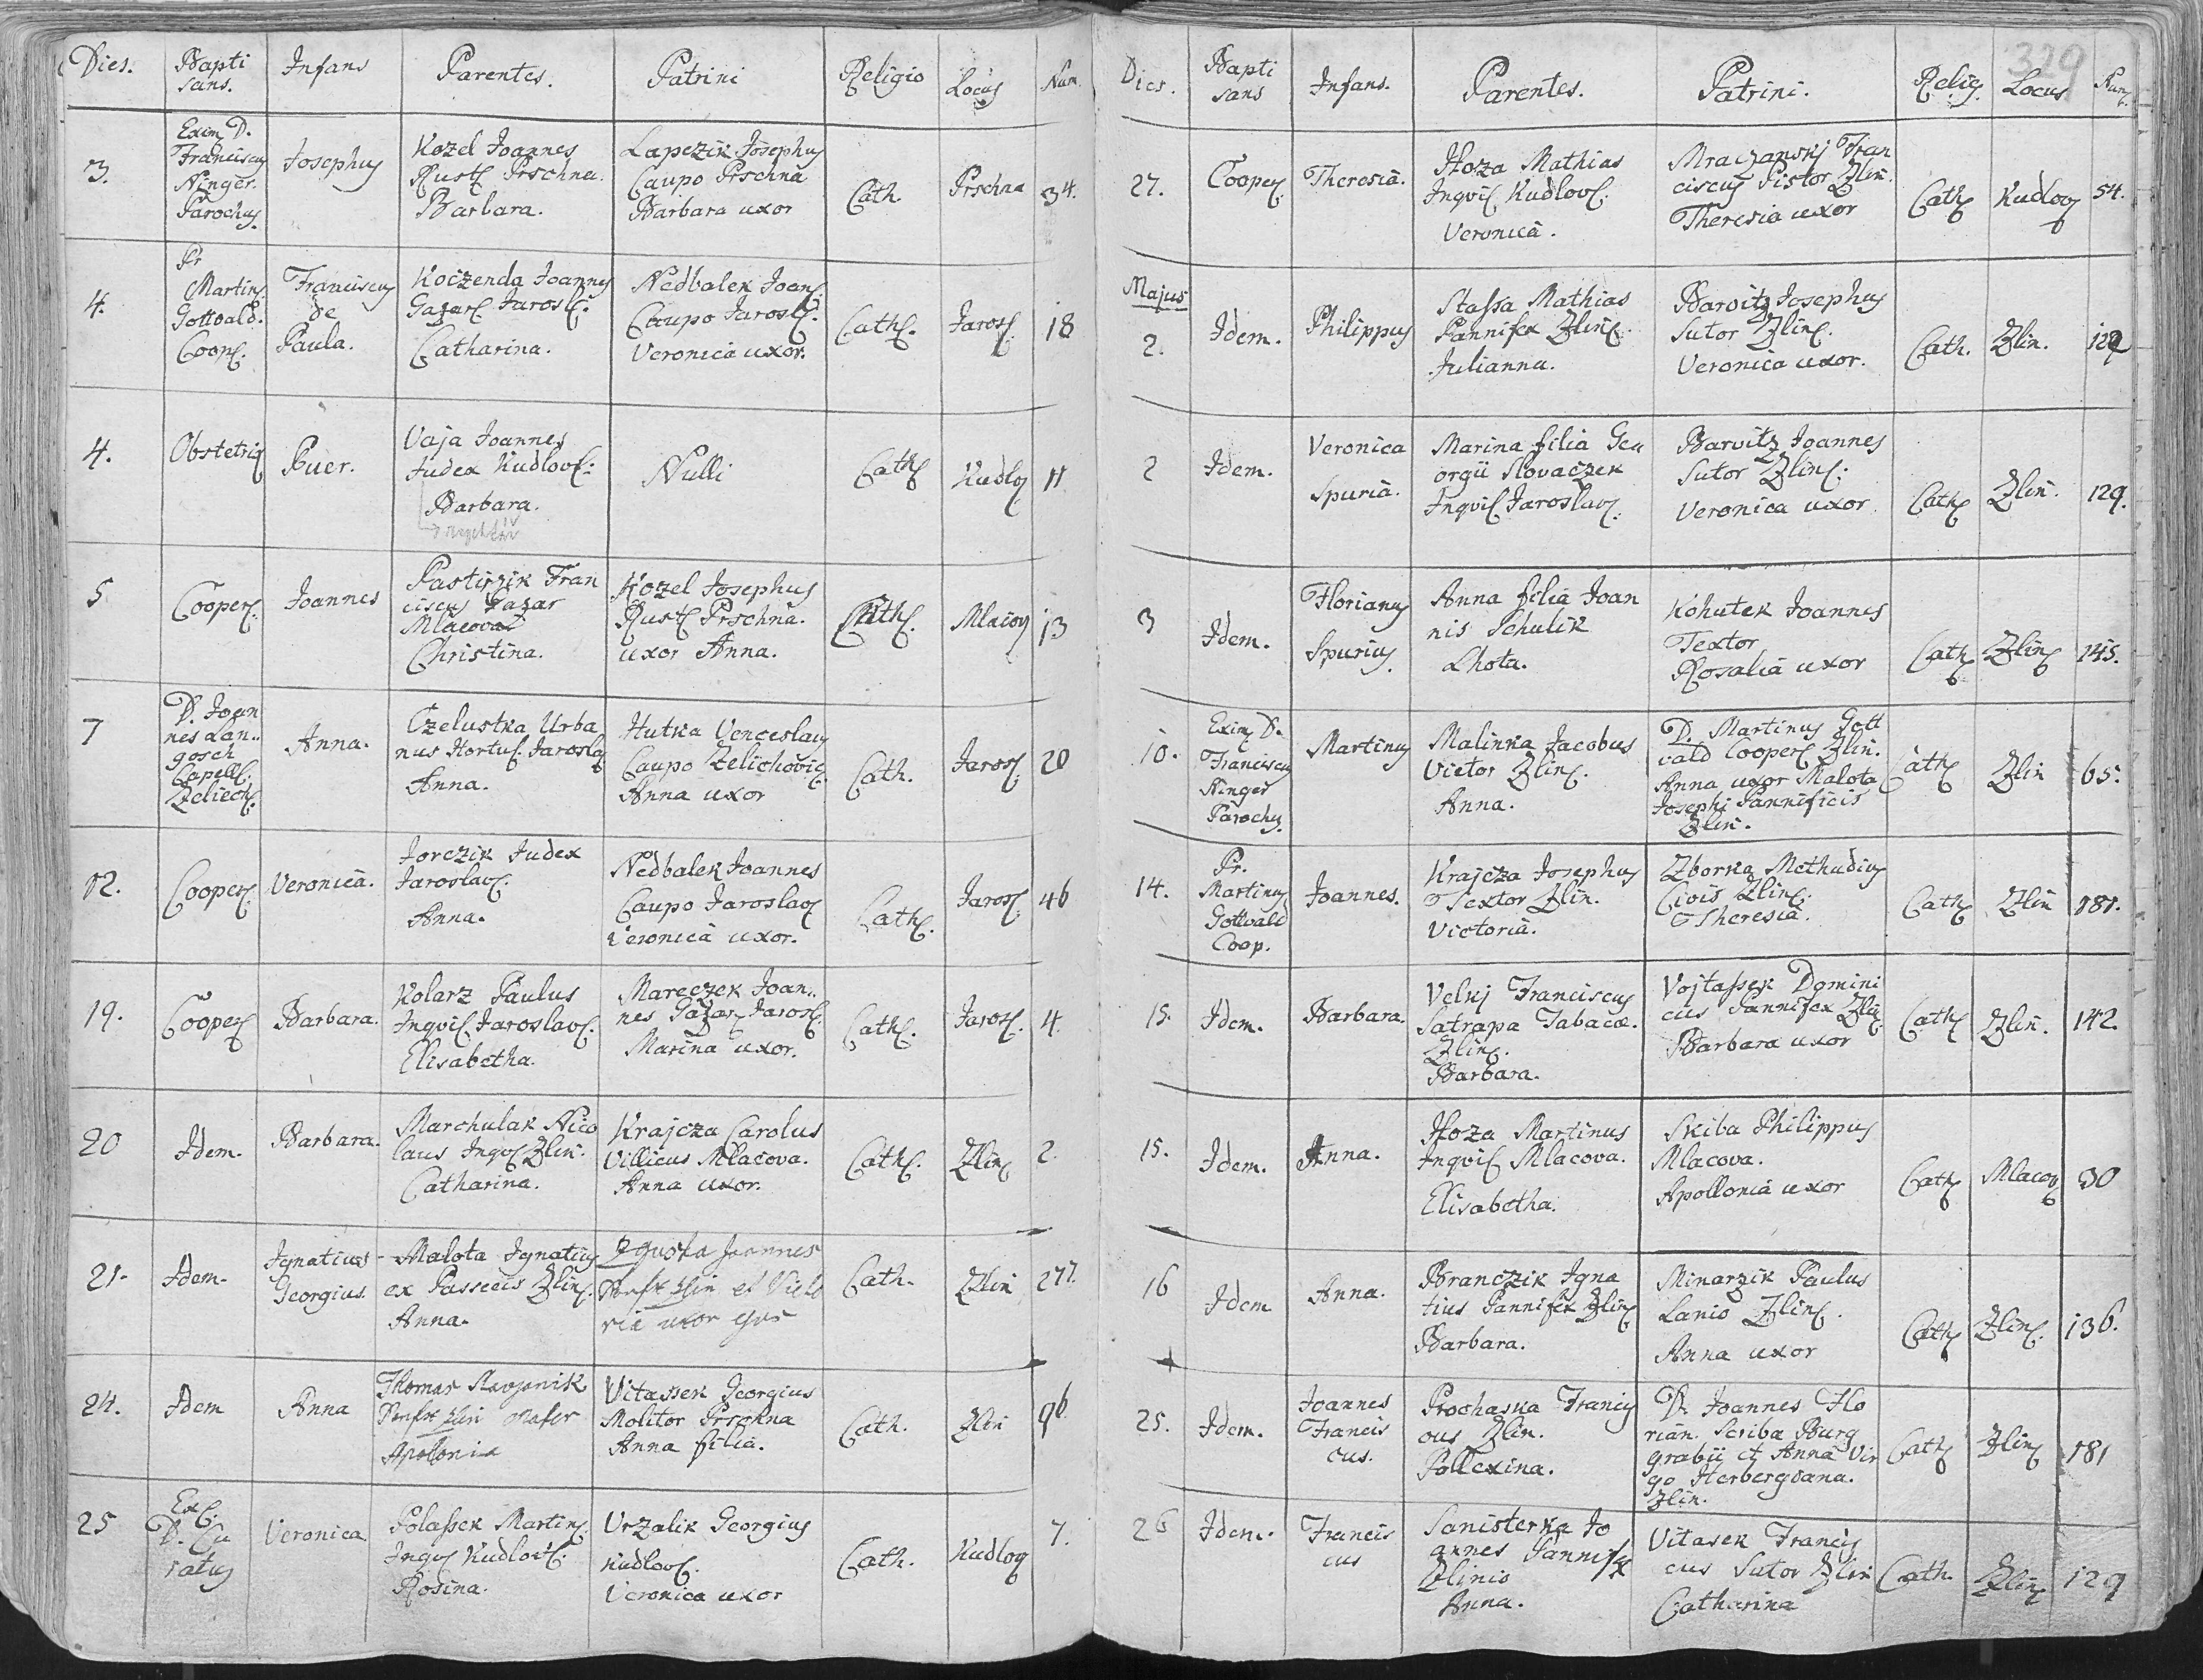 Dies. Baptisans. Infans Parentes. Patrini Religio Locus Num.
3. Exim. D. Franciscus Ninger. Parochus. Josephus Kozel Joannes Rust. Prschna. Barbara. Lapezik Josephus Caupo Prschna Barbara uxor Cath. Prschna 34.
4. Pr. Martin. Gottvald. Coop. Franciscus de Paula. Koczenda Joannes Gazar. Jarosl. Catharina. Nedbalek Joan. Caupo Jarosl. Veronica uxor. Cath. Jarosl. 18
4. Obstetrix Puer. Vaja Joannes Judex Kudlov. Barbara. Nulli Cath. Kudlov. 11
5 Cooper. Joannes Pastirzik Franciscus Gazar Mlacova Christina. Kozel Josephus Rust. Prschna. uxor Anna. Cath. Mlacov. 13
7 D. Joannes Langosch Capell. Zeliech. Anna. Czelustka Urbanus Hortul. Jaroslav. Anna. Hutka Venceslaus Caupo Zelichovic. Anna uxor Cath. Jarosl. 20
12. Cooper. Veronica. Jorczik Judex Jaroslav. Anna. Nedbalek Joannes Caupo Jaroslav. Veronica uxor. Cath. Jarosl. 46
19. Cooper. Barbara. Kolarz Paulus Inqvil. Jaroslav. Elisabetha. Mareczek Joannes Gazar. Jarosl. Marina uxor. Cath. Jarosl. 4.
20 Idem. Barbara. Marchulak Nicolaus Inqv. Zlin. Catharina. Krajcza Carolus Villicus Mlacova. Anna uxor. Cath. Zlin. 2.
21. Idem. Ignatius Georgius. Malota Ignatius ex Passecis Zlin. Anna. Joannes Zlin et uxor Cath. Zlin 277.
24. Idem Anna Thomas Zlin Mater Apolonia Vitassek Georgius Molitor Prschna Anna filia. Cath. Zlin 96
25 Exc. D. Curatus Veronica Polassek Martin. Inqv. Kudlov. Rosina. Vrzalik Georgius Kudlov. Veronica uxor Cath. Kudlov 7.
329
Dies. Baptisans Infans. Parentes. Patrini. Relig. Locus Num.
27. Cooper. Theresia. Hoza Mathias Inqvil. Kudlov. Veronica. Mraczanskj Franciscus Pistor Zlin. Theresia uxor Cath. Kudlov 54.
Majus
2. Idem. Philippus Stassa Mathias Pannifex Zlin. Julianna. Barvitz Josephus Sutor Zlin. Veronica uxor. Cath. Zlin. 129
2 Idem. Veronica Spuria. Marina filia Georgii Slovaczek Inqvil. Jaroslav. Barvitz Joannes Sutor Zlin. Veronica uxor Cath. Zlin. 129.
3 Idem. Florianus Spurius. Anna filia Joannis Schulik Lhota. Kohutek Joannes Textor Rosalia uxor Cath. Zlin. 145.
10. Exim. D. Franciscus Ninger Parochus. Martinus Malinka Jacobus Vietor Zlin. Anna. D. Martinus Gottvald Cooper. Zlin. Anna uxor Malota Josephi Pannificis Zlin. Cath. Zlin 65.
14. Pr. Martinus Gottvald Coop. Joannes. Krajcza Josephus Textor Zlin. Victoria. Zborka Methudius Civis Zlin. Theresia. Cath. Zlin 181.
15. Idem. Barbara. Velkj Franciscus Satrapa Tabacæ. Zlin. Barbara. Vojtassek Dominicus Pannifex Zlin. Barbara uxor Cath. Zlin. 142.
15. Idem. Anna. Hoza Martinus Inqvil. Mlacova. Elisabetha. Skiba Philippus Mlacova. Apollonia uxor Cath. Mlacov. 30
16 Idem Anna. Branczik Ignatius Pannifex Zlin. Barbara. Minarzik Paulus Lanio Zlin. Anna uxor Cath. Zlin. 136.
25. Idem. Joannes Franciscus. Prochaska Franciscus Zlin. Pollexina. D. Joannes Florian. Scriba Burggrabii et Anna Virgo Herbergiana. Zlin. Cath. Zlin. 181
26 Idem. Franciscus Sanisterka Joannes Pannifex Zlinio Anna. Vitasek Franciscus Sutor Zlin Catharina Cath. Zlin. 129